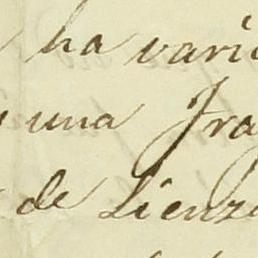 ha vari
una Fra
de Lienz